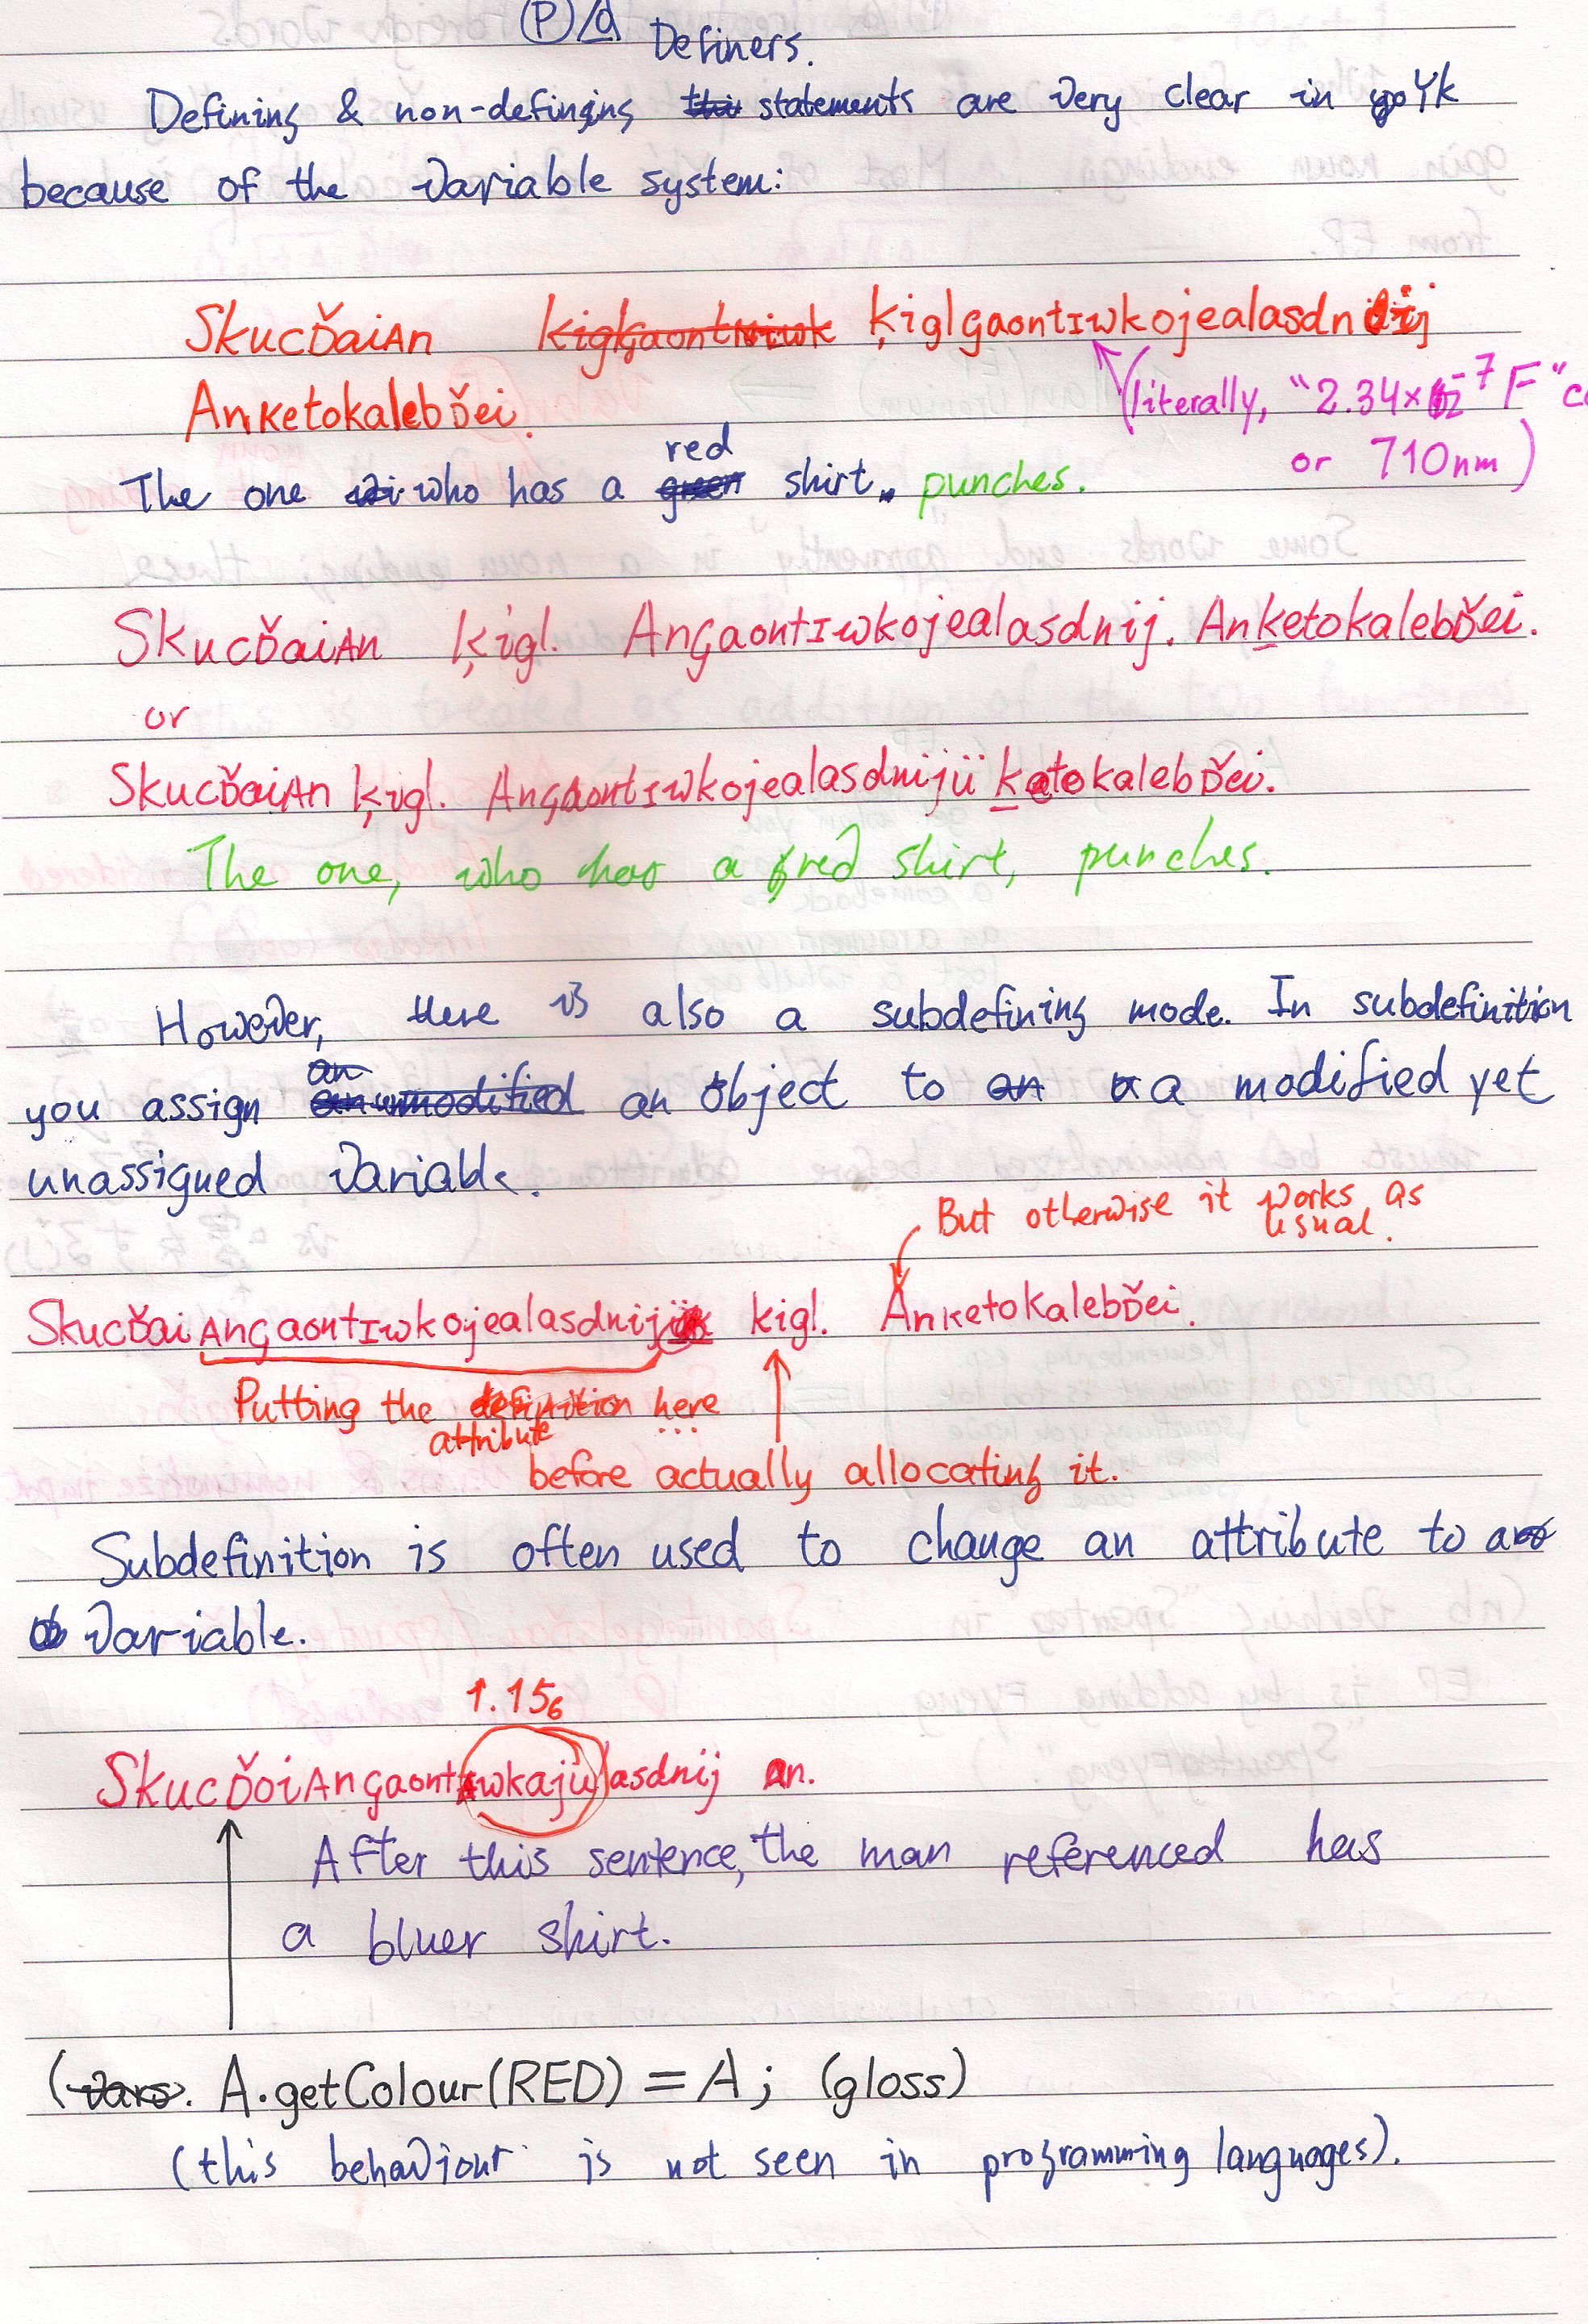 P/d Definers.
Defining & non-defining statements are very clear in Yk
because of the variable system:
SkucĎaiAn ķiglgaontɪwkojealasdnij
AnketokalebĎei.
(literally, "2.34×
or 710nm)
red
The one who has a shirt punches.
SkucĎaiAn ķigl. Angaontɪwkojealasdnij. AnketokalebĎei.
or
SkucĎaiAn ķigl. Angaontɪwkojealasdnijü ketokalebĎei.
The one, who has a red shirt, punches.
However, there is also a subdefining mode. In subdefinition
you assign an object to a modified yet
unassigned variable.
But otherwise it works as
usual.
SkucĎaiAngaontɪwkojealasdnij kigl. AnketokalebĎei.
Putting the attribute here
...
before actually allocating it.
Subdefinition is often used to change an attribute to a
variable.
1.15₆
SkucĎoiAngaontɪwkajülasdnij An.
After this sentence, the man referenced has
a bluer shirt.
(A.getColour(RED) = A; (gloss)
(this behaviour is not seen in programming languages).